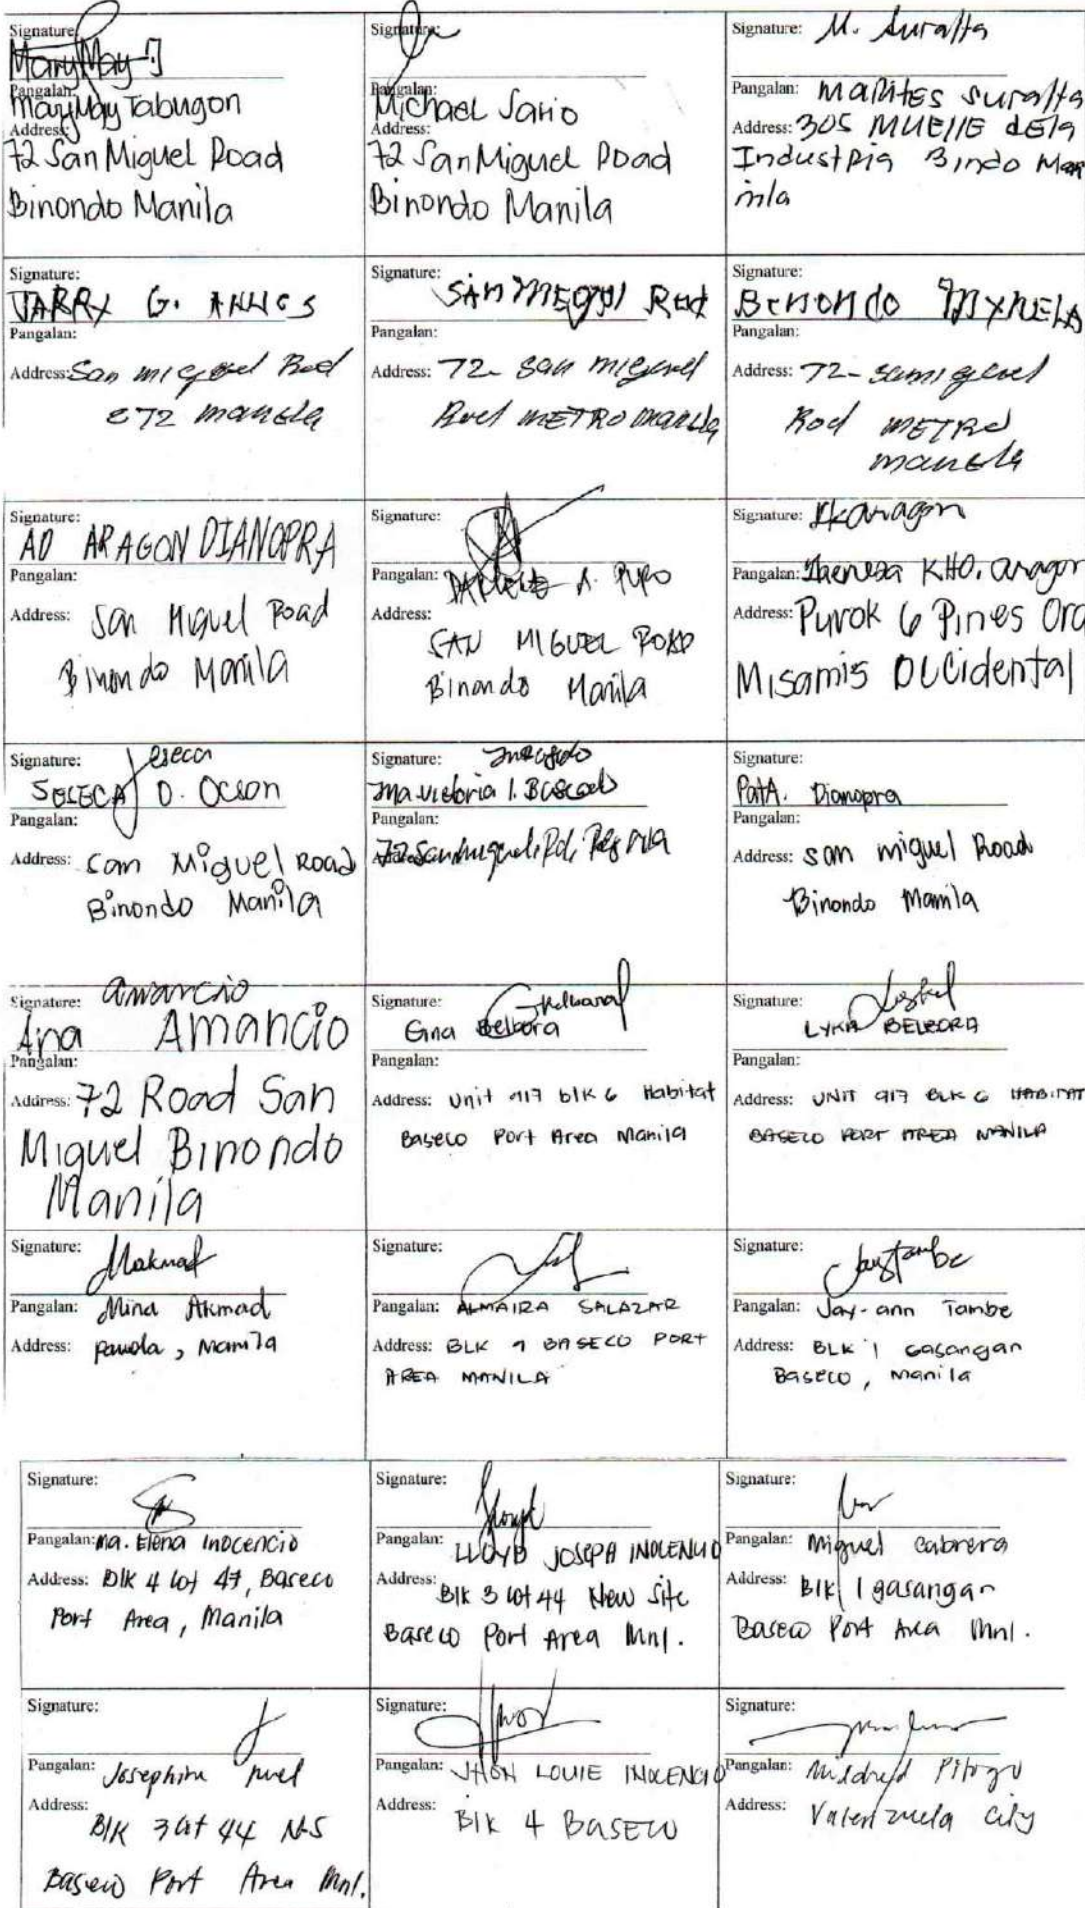 Signature:
MaryMay J
Pangalan:
MaryMay Tabugon
Address:
72 San Miguel Road
Binondo Manila
Signature:
Pangalan:
Michael Sario
Address:
72 San Miguel Road
Binondo Manila
Signature: M. Suralta
Pangalan: Marites Suralta
Address: 305 MUEllE dEla
IndustRia Bindo Man
inla
Signature:
JARRY G.
Pangalan:
Address: San miguel Rod
#72 manela
Signature:
SAn MEgul Rod
Pangalan:
Address: 72- San miguel
Rod METRO manela
Signature:
Benondo
Pangalan:
Address: 72- San miguel
Rod METRO
manela
Signature:
AD ARAGON DIANOPRA
Pangalan:
Address: San Miguel Road
Binondo Manila
Signature:
Pangalan: A. PURO
Address:
SAN MIGUEL ROAD
Binondo Manila
Signature: Tkaragon
Pangalan: Theresa KHO. aragon
Address: Purok 6 Pines Oro
Misamis Occidental
Signature:
SELECA O. Ocson
Pangalan:
Address: San Miguel Road
Binondo Manila
Signature:
Ma. Victoria I. Boscado
Pangalan:
72 San Miguel, Rd,
Signature:
PatA. Dianopra
Pangalan:
Address: San miguel Road
Binondo Manila
Signature: amancio
Ana Amancio
Pangalan:
Address: 72 Road San
Miguel Binondo
Manila
Signature:
Gina Belbora
Pangalan:
Address: Unit 917 blk 6 Habitat
Baseco Port Area Manila
Signature:
LYKA BELBORA
Pangalan:
Address: UNIT 917 BLK 6 HABITAT
BASECO PORT AREA MANILA
Signature: Makmad
Pangalan: Mina Akmad
Address: , Manila
Signature:
Pangalan: ALMAIRA SALAZAR
Address: BLK 9 BASECO PORT
AREA MANILA
Signature: Jaytambe
Pangalan: Jay-ann Tambe
Address: BLK 1 Gasangan
Baseco, Manila
Signature:
Pangalan: Ma. Elena Inocencio
Address: Blk 4 lot 47, Baseco
Port Area, Manila
Signature:
Pangalan: LLOYD JOSEPH INOCENCIO
Address: Blk 3 lot 44 New Site
Baseco Port Area Mnl.
Signature:
Pangalan: Miguel Cabrera
Address: Blk 1 gasangan
Baseco Port Area Mnl.
Signature:
Pangalan: Josephine
Address:
Blk 3 lot 44 N.S
Baseco Port Area Mnl.
Signature:
Pangalan: JHON LOUIE INOCENCIO
Address: Blk 4 Baseco
Signature:
Pangalan: Mildred Pitogo
Address: Valenzuela City